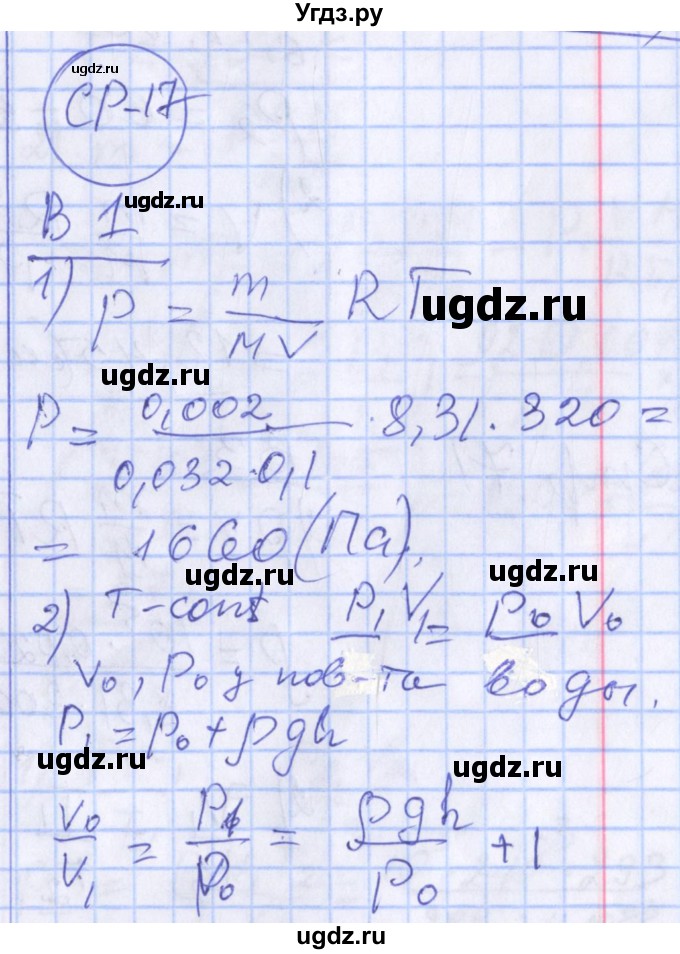 Угдз.ру
ugdz.ru
СР-17
ugdz.ru
В 1
1) P = m/MV RT
ugdz.ru
ugdz.ru
P = 0,002/0,032·0,1 · 8,31 · 320 =
= 1660 (Па).
ugdz.ru
ugdz.ru
2) T-const P₁V₁ = P₀V₀
V₀, P₀ у пов-та воды.
P₁ = P₀ + ρgh
ugdz.ru
ugdz.ru
V₀/V₁ = P₁/P₀ = ρgh/P₀ + 1
ugdz.ru
ugdz.ru